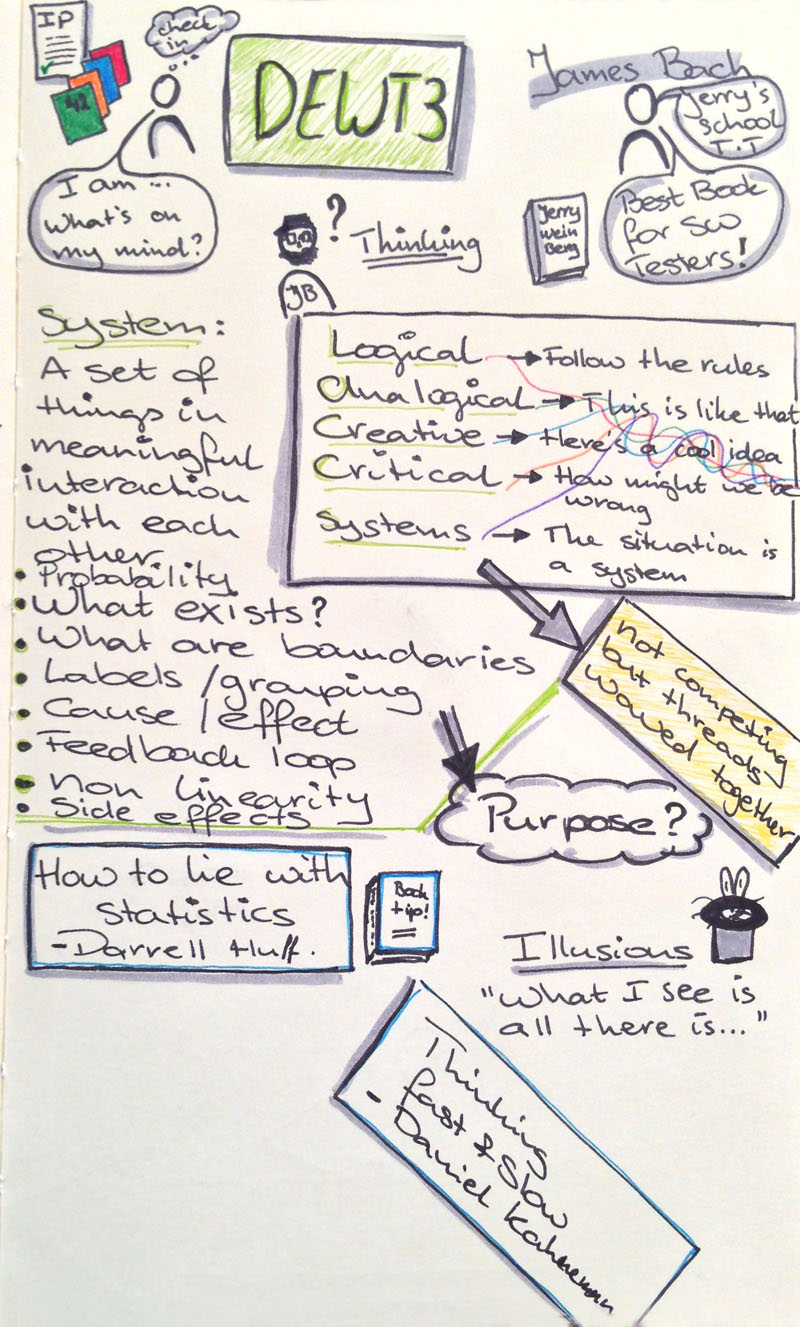 IP
42
check
in
DEWT3
James Bach
Jerry's
school
T.T
I am ...
what's on
my mind?
Jerry
wein
Berg
Best Book
for SW
Testers!
?
Thinking
JB
System:
A set of
things in
meaningful
interaction
with each
other
• Probability
• What exists?
• What are boundaries
• Labels / grouping
• Cause / effect
• Feedback loop
• Non linearity
• Side effects
Logical → Follow the rules
Analogical → This is like that
Creative → Here's a cool idea
Critical → How might we be
wrong
Systems → The situation is
a system
not competing
but threads
waved together
Purpose?
How to lie with
statistics
- Darrell Huff.
Book
tip!
Illusions
"What I see is
all there is..."
Thinking
fast & slow
- Daniel Kahneman